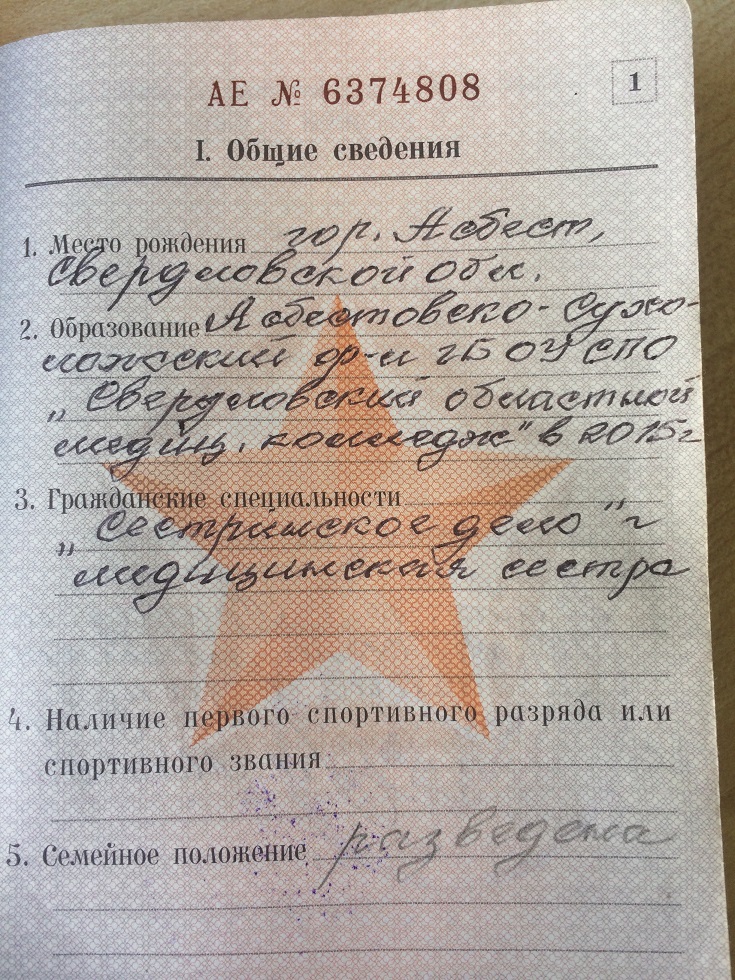 АЕ № 6374808
1
I. Общие сведения
1. Место рождения гор. Асбест,
Свердловской обл.
2. Образование Асбестовско-Сухо-
ложский ф-л ГБОУ СПО
„Свердловский областной
медиц. колледж" в 2015г
3. Гражданские специальности
„Сестринское дело"
медицинская сестра
4. Наличие первого спортивного разряда или
спортивного звания
5. Семейное положение разведена